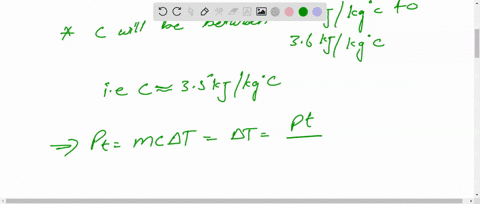 * C will be between kJ/kg°C to
3.6 kJ/kg°C
i.e C ≈ 3.5 kJ/kg°C
⇒ Pt = mCΔT = ΔT = Pt